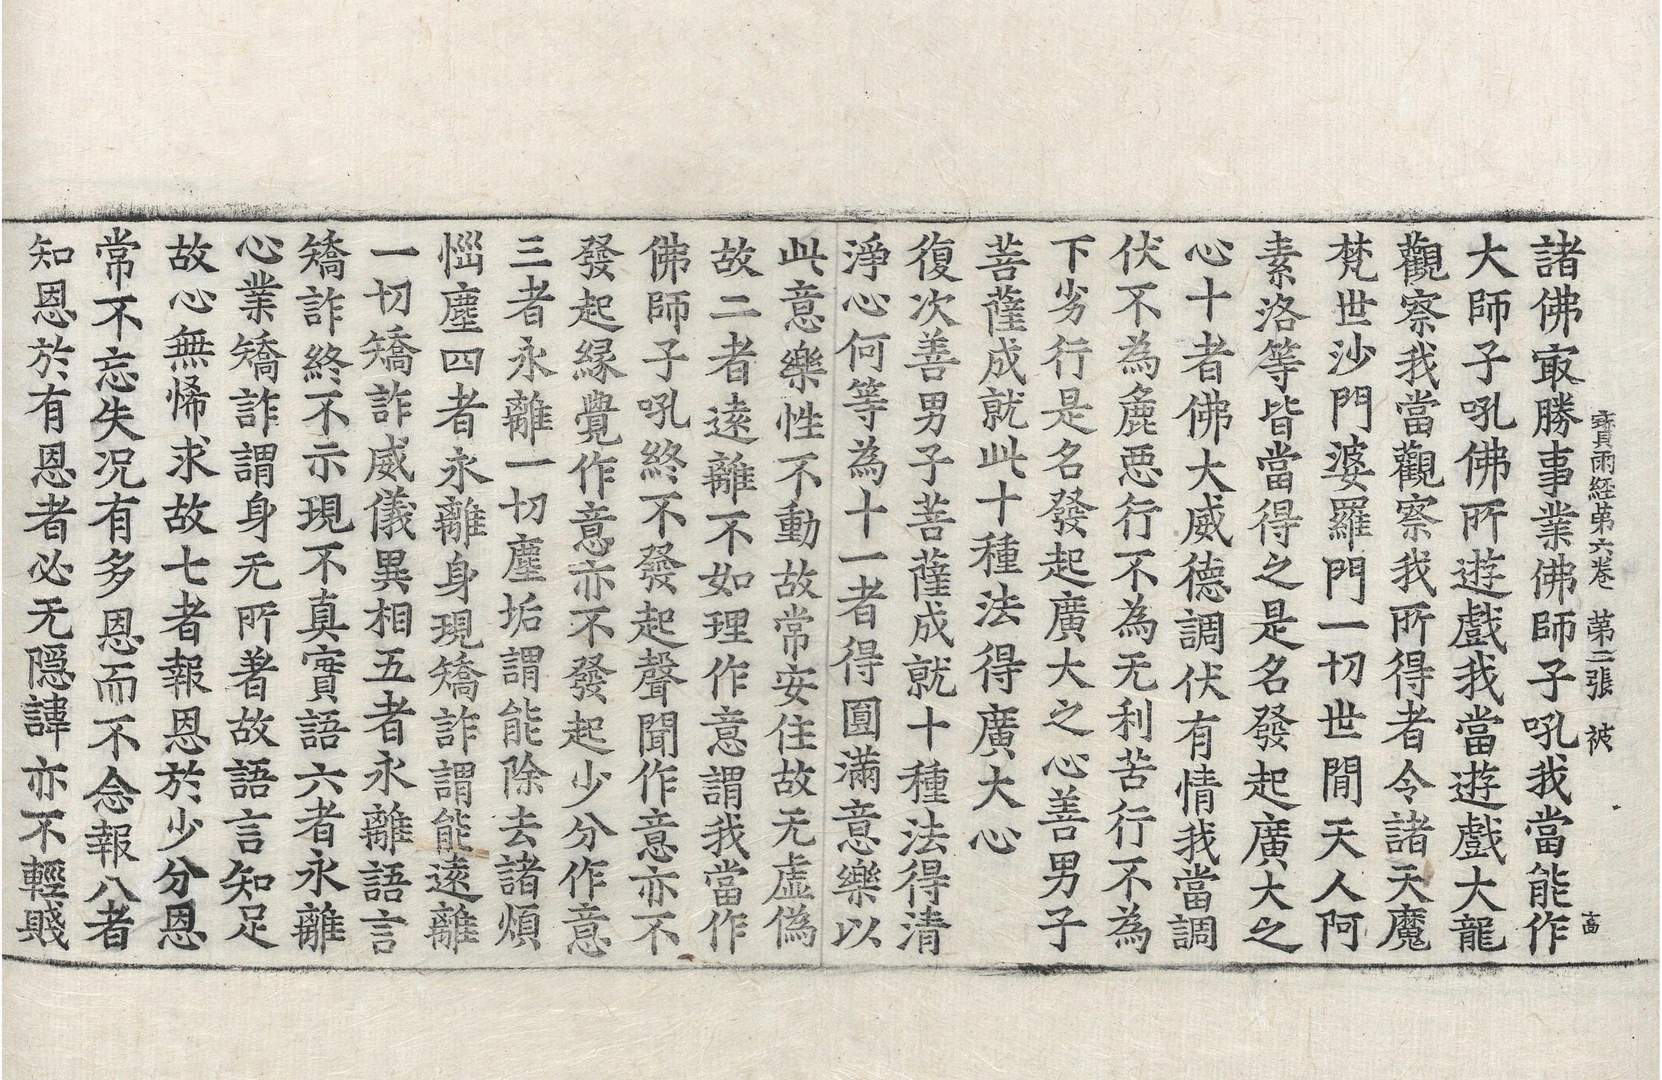 寶雨経苐六卷 苐二張 被 髙
諸佛㝡勝事業佛師子吼我當能作
大師子吼佛所遊戲我當遊戲大龍
觀察我當觀察我所得者令諸天魔
梵世沙門婆羅門一切世閒天人阿
素洛等皆當得之是名發起廣大之
心十者佛大威德調伏有情我當調
伏不為麁惡行不為无利苦行不為
下劣行是名發起廣大之心善男子
菩薩成就此十種法得廣大心
復次善男子菩薩成就十種法得清
淨心何等為十一者得圓滿意樂以
此意樂性不動故常安住故无虛偽
故二者遠離不如理作意謂我當作
佛師子吼終不發起聲聞作意亦不
發起緣覺作意亦不發起少分作意
三者永離一切塵垢謂能除去諸煩
惱塵四者永離身現矯詐謂能遠離
一切矯詐威儀異相五者永離語言
矯詐終不示現不真實語六者永離
心業矯詐謂身无所著故語言知足
故心無悕求故七者報恩於少分恩
常不忘失况有多恩而不念報八者
知恩於有恩者必无隱諱亦不輕賤